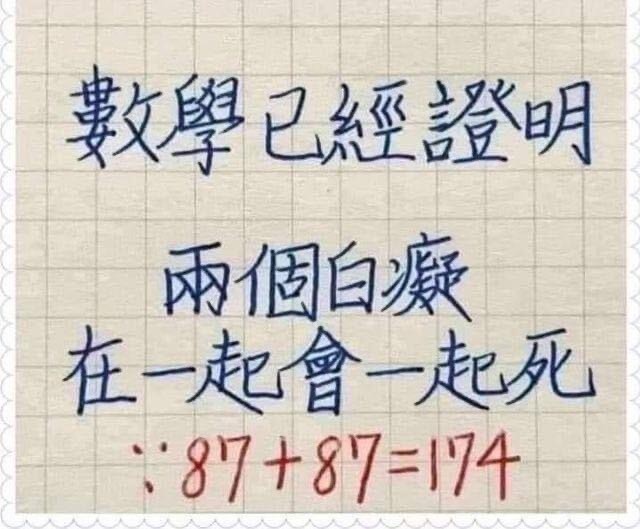 數學已經證明
兩個白癡
在一起會一起死
∵87+87=174